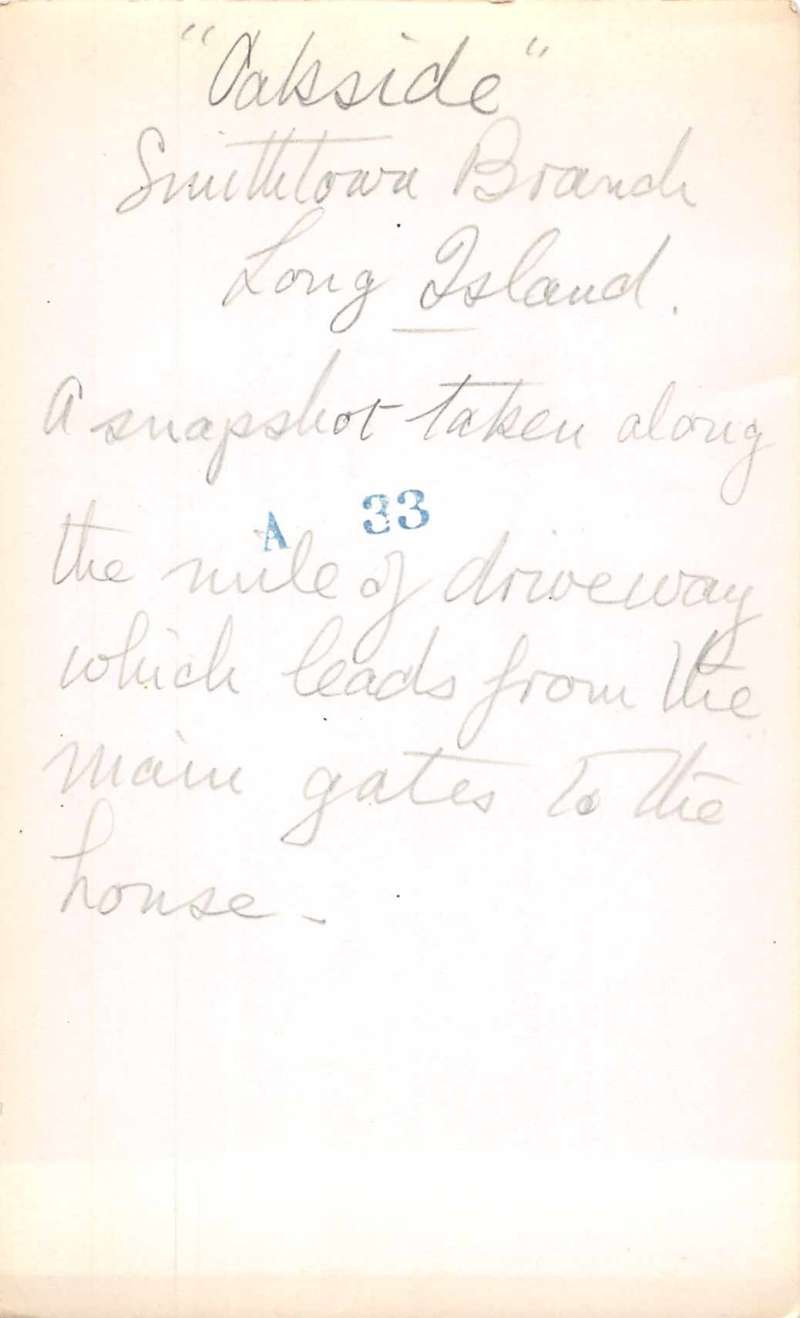 "Oakside"
Smithtown Branch
Long Island.
A snapshot taken along
A 33
the mile of driveway
which leads from the
main gates to the
house -